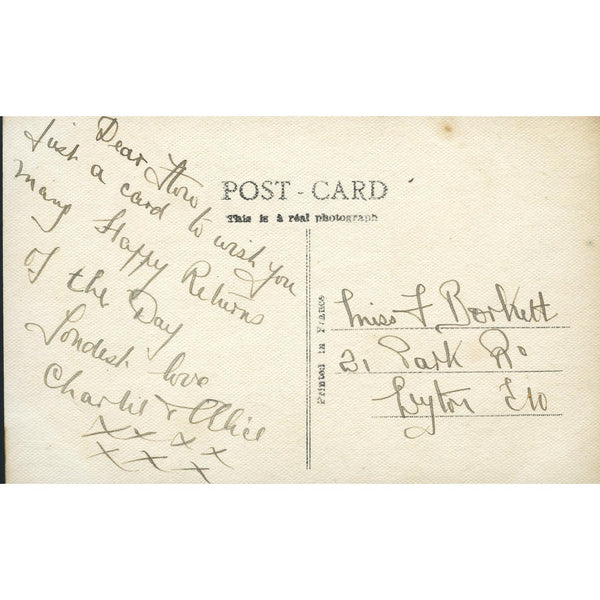 Dear Flow
Just a card to wish you
many Happy Returns
of the Day
Fondest love
Charlie & Alice
x x x x
x x x x
POST - CARD
This is a réal photograph
Printed in France
Miss F Borkett
21 Park Rd
Leyton E10